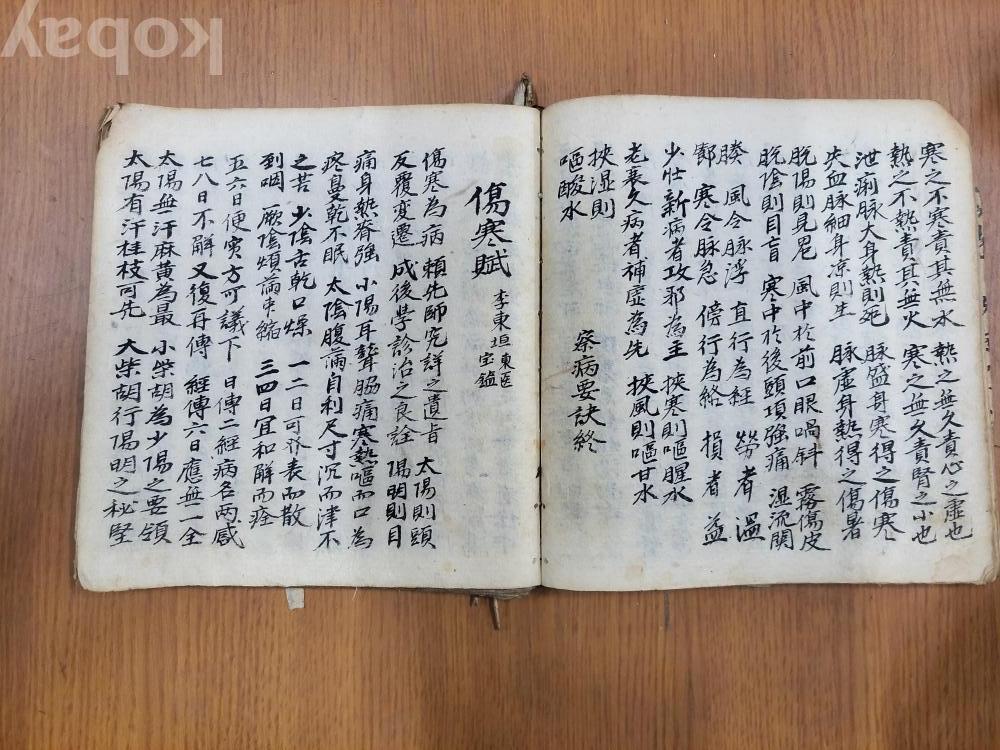 寒之不寒責其無水　熱之無久責心之虛也
熱之不熱責其無火　寒之無久責腎之小也
泄痢脉大身熱則死　脉盛身寒得之傷寒
失血脉細身凉則生　脉虛身熱得之傷暑
脫陽則見鬼　風中於前口眼喎斜　霧傷皮
脫陰則目盲　寒中於後頭項強痛　濕流關
腠　風令脉浮　直行為經　勞者　溫
節　寒令脉急　傍行為絡　損者　益
少壯新病者攻邪為主　挾寒則嘔腥水
老衰久病者補虛為先　挾風則嘔甘水
挾湿則
嘔酸水
察病要訣終
傷寒賦　李東垣東医
宝鑑
傷寒為病　賴先師究詳之遺旨　太陽則頭
反覆変遷　成後學診治之良詮　陽明則目
痛身熱脊強　小陽耳聾脇痛寒熱嘔而口為
疼鼻乾不眠　太陰腹痛自利尺寸沉而津不
之苦　少陰舌乾口燥　一二日可發表而散
到咽　厥陰煩滿囊縮　三四日宜和解而痊
五六日便实方可議下　日傳二經病名两感
七八日不解又復再傳　經傳六日應無一全
太陽無汗麻黃為最　小柴胡為少陽之要領
太陽有汗桂枝可先　大柴胡行陽明之秘堅
kobay